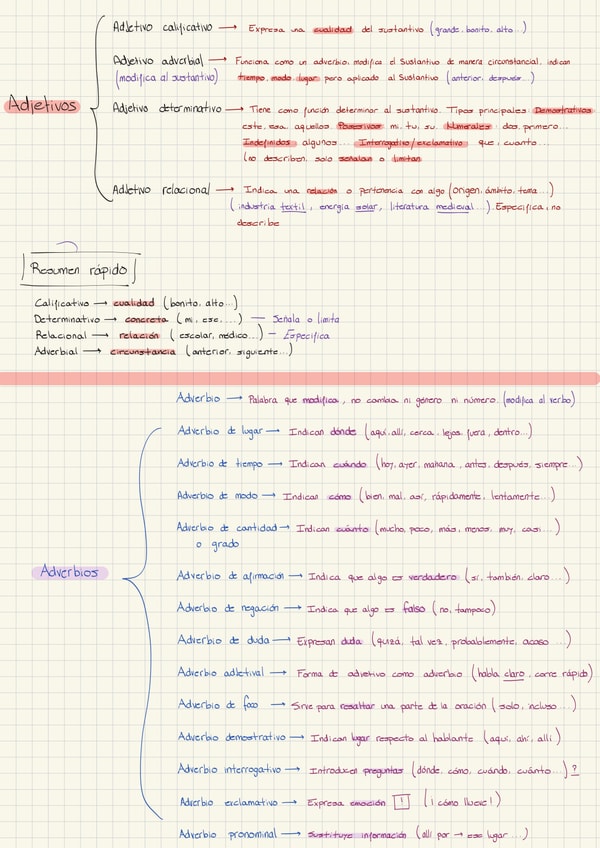 Adjetivo calificativo → Expresa una cualidad del sustantivo (grande, bonito, alto...)
Adjetivo adverbial → Funciona como un adverbio, modifica el Sustantivo de manera circunstancial, indican
(modifica al sustantivo) tiempo, modo, lugar pero aplicado al Sustantivo (anterior, después...)
Adjetivos
Adjetivo determinativo → Tiene como función determinar al sustantivo. Tipos principales: Demostrativos
este, esa, aquellos. Posesivos mi, tu, su. Numerales: dos, primero...
Indefinidos algunos... Interrogativo/exclamativo que, cuanto...
(no describen, solo señalan o limitan
Adjetivo relacional → Indica una relación o pertenencia con algo (origen, ámbito, tema...)
(industria textil, energía solar, literatura medieval...). Especifica, no
describe
Resumen rápido
Calificativo → cualidad (bonito, alto...)
Determinativo → concreta (mi, ese,...) — Señala o limita
Relacional → relación (escolar, médico...) – Especifica
Adverbial → circunstancia (anterior, siguiente...)
Adverbio → Palabra que modifica, no cambia ni género ni número (modifica al verbo)
Adverbio de lugar → Indican dónde (aquí, allí, cerca, lejos, fuera, dentro...)
Adverbio de tiempo → Indican cuándo (hoy, ayer, mañana, antes, después, siempre...)
Adverbio de modo → Indican cómo (bien, mal, así, rápidamente, lentamente...)
Adverbio de cantidad → Indican cuánto (mucho, poco, más, menos, muy, casi...)
o grado
Adverbios
Adverbio de afirmación → Indica que algo es verdadero (sí, también, claro...)
Adverbio de negación → Indica que algo es falso (no, tampoco)
Adverbio de duda → Expresan duda (quizá, tal vez, probablemente, acaso...)
Adverbio adjetival → Forma de adjetivo como adverbio (habla claro, corre rápido)
Adverbio de foco → Sirve para resaltar una parte de la oración (solo, incluso...)
Adverbio demostrativo → Indican lugar respecto al hablante (aquí, ahí, allí)
Adverbio interrogativo → Introducen preguntas (dónde, cómo, cuándo, cuánto...) ?
Adverbio exclamativo → Expresa emoción ! (¡cómo llueve!)
Adverbio pronominal → Sustituye información (allí por → ese lugar...)